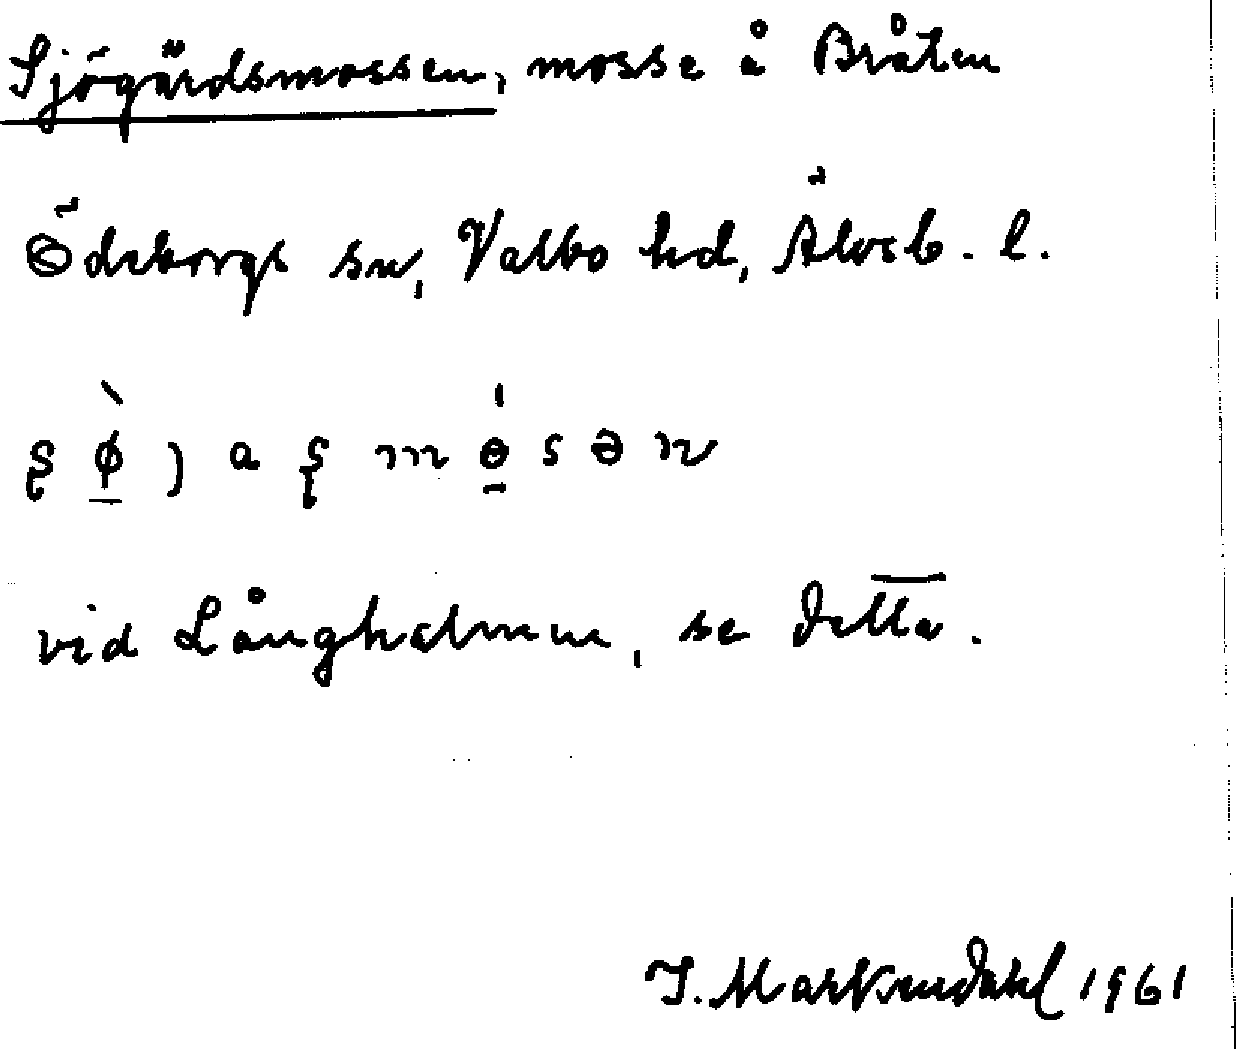 Sjögärdsmossen, mosse å Bråten
Ödeborgs sn, Valbo hd, Älvsb. l.
vid Långholmen, se detta.
I. Markendahl 1961